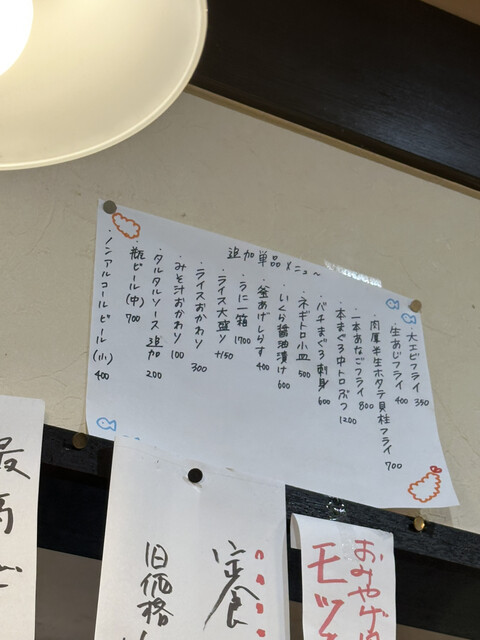 追加単品メニュー
・大エビフライ 350
・生あじフライ 400
・肉厚半生ホタテ貝柱フライ 700
・一本あなごフライ 800
・本まぐろ中トロぶつ 1200
・バチまぐろ刺身 600
・ネギトロ小皿 500
・いくら醤油漬け 600
・釜あげしらす 400
・うに一箱 1700
・ライス大盛り +150
・ライスおかわり 300
・みそ汁おかわり 100
・タルタルソース追加 200
・瓶ビール(中) 700
・ノンアルコールビール(小) 400
おみやげ
モツ
定食
旧価格
最高